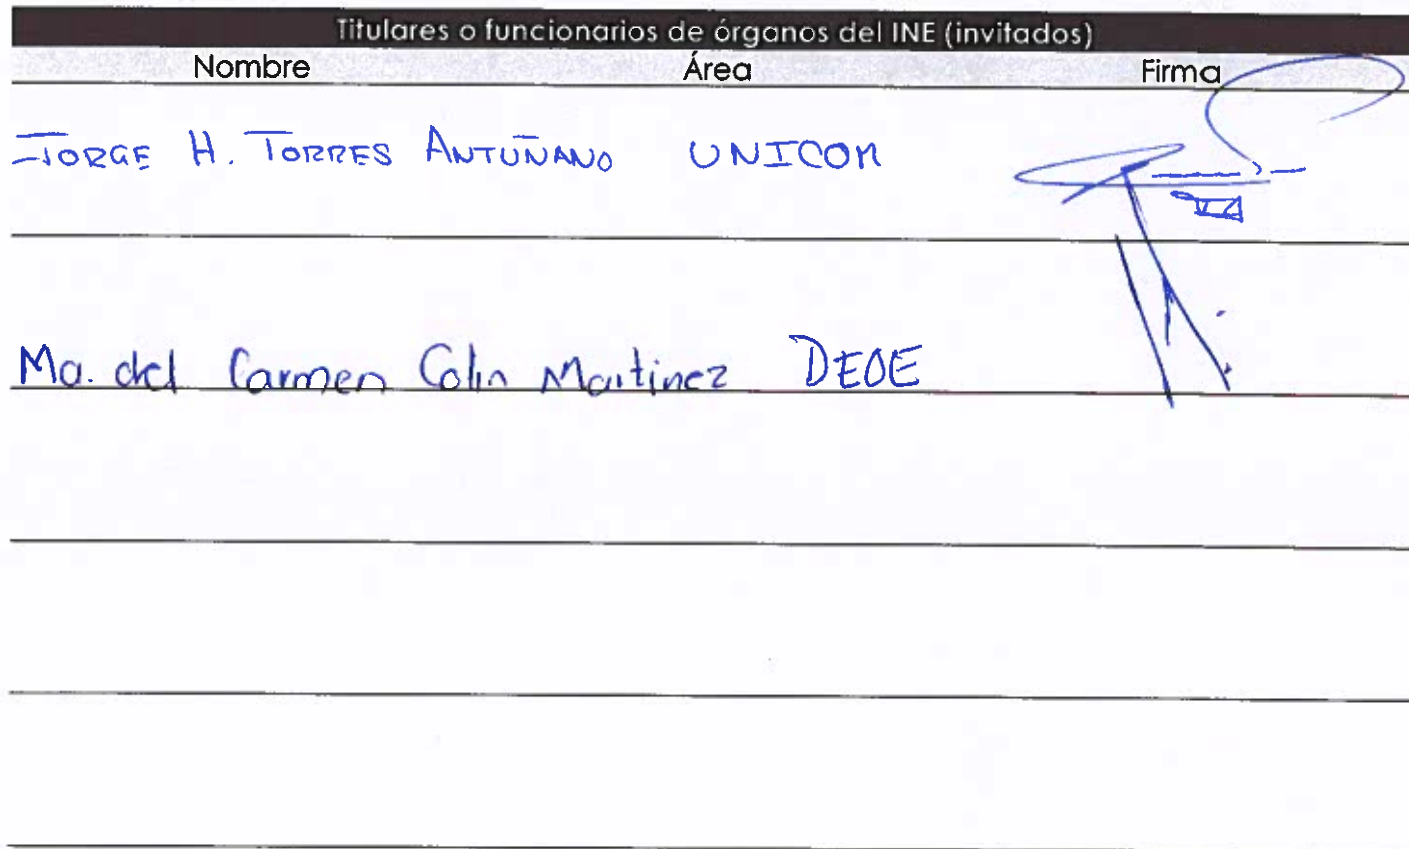 Titulares o funcionarios de órganos del INE (invitados)
Nombre Área Firma
JORGE H. TORRES ANTUÑANO UNICOM
Ma. del Carmen Colin Martinez DEOE